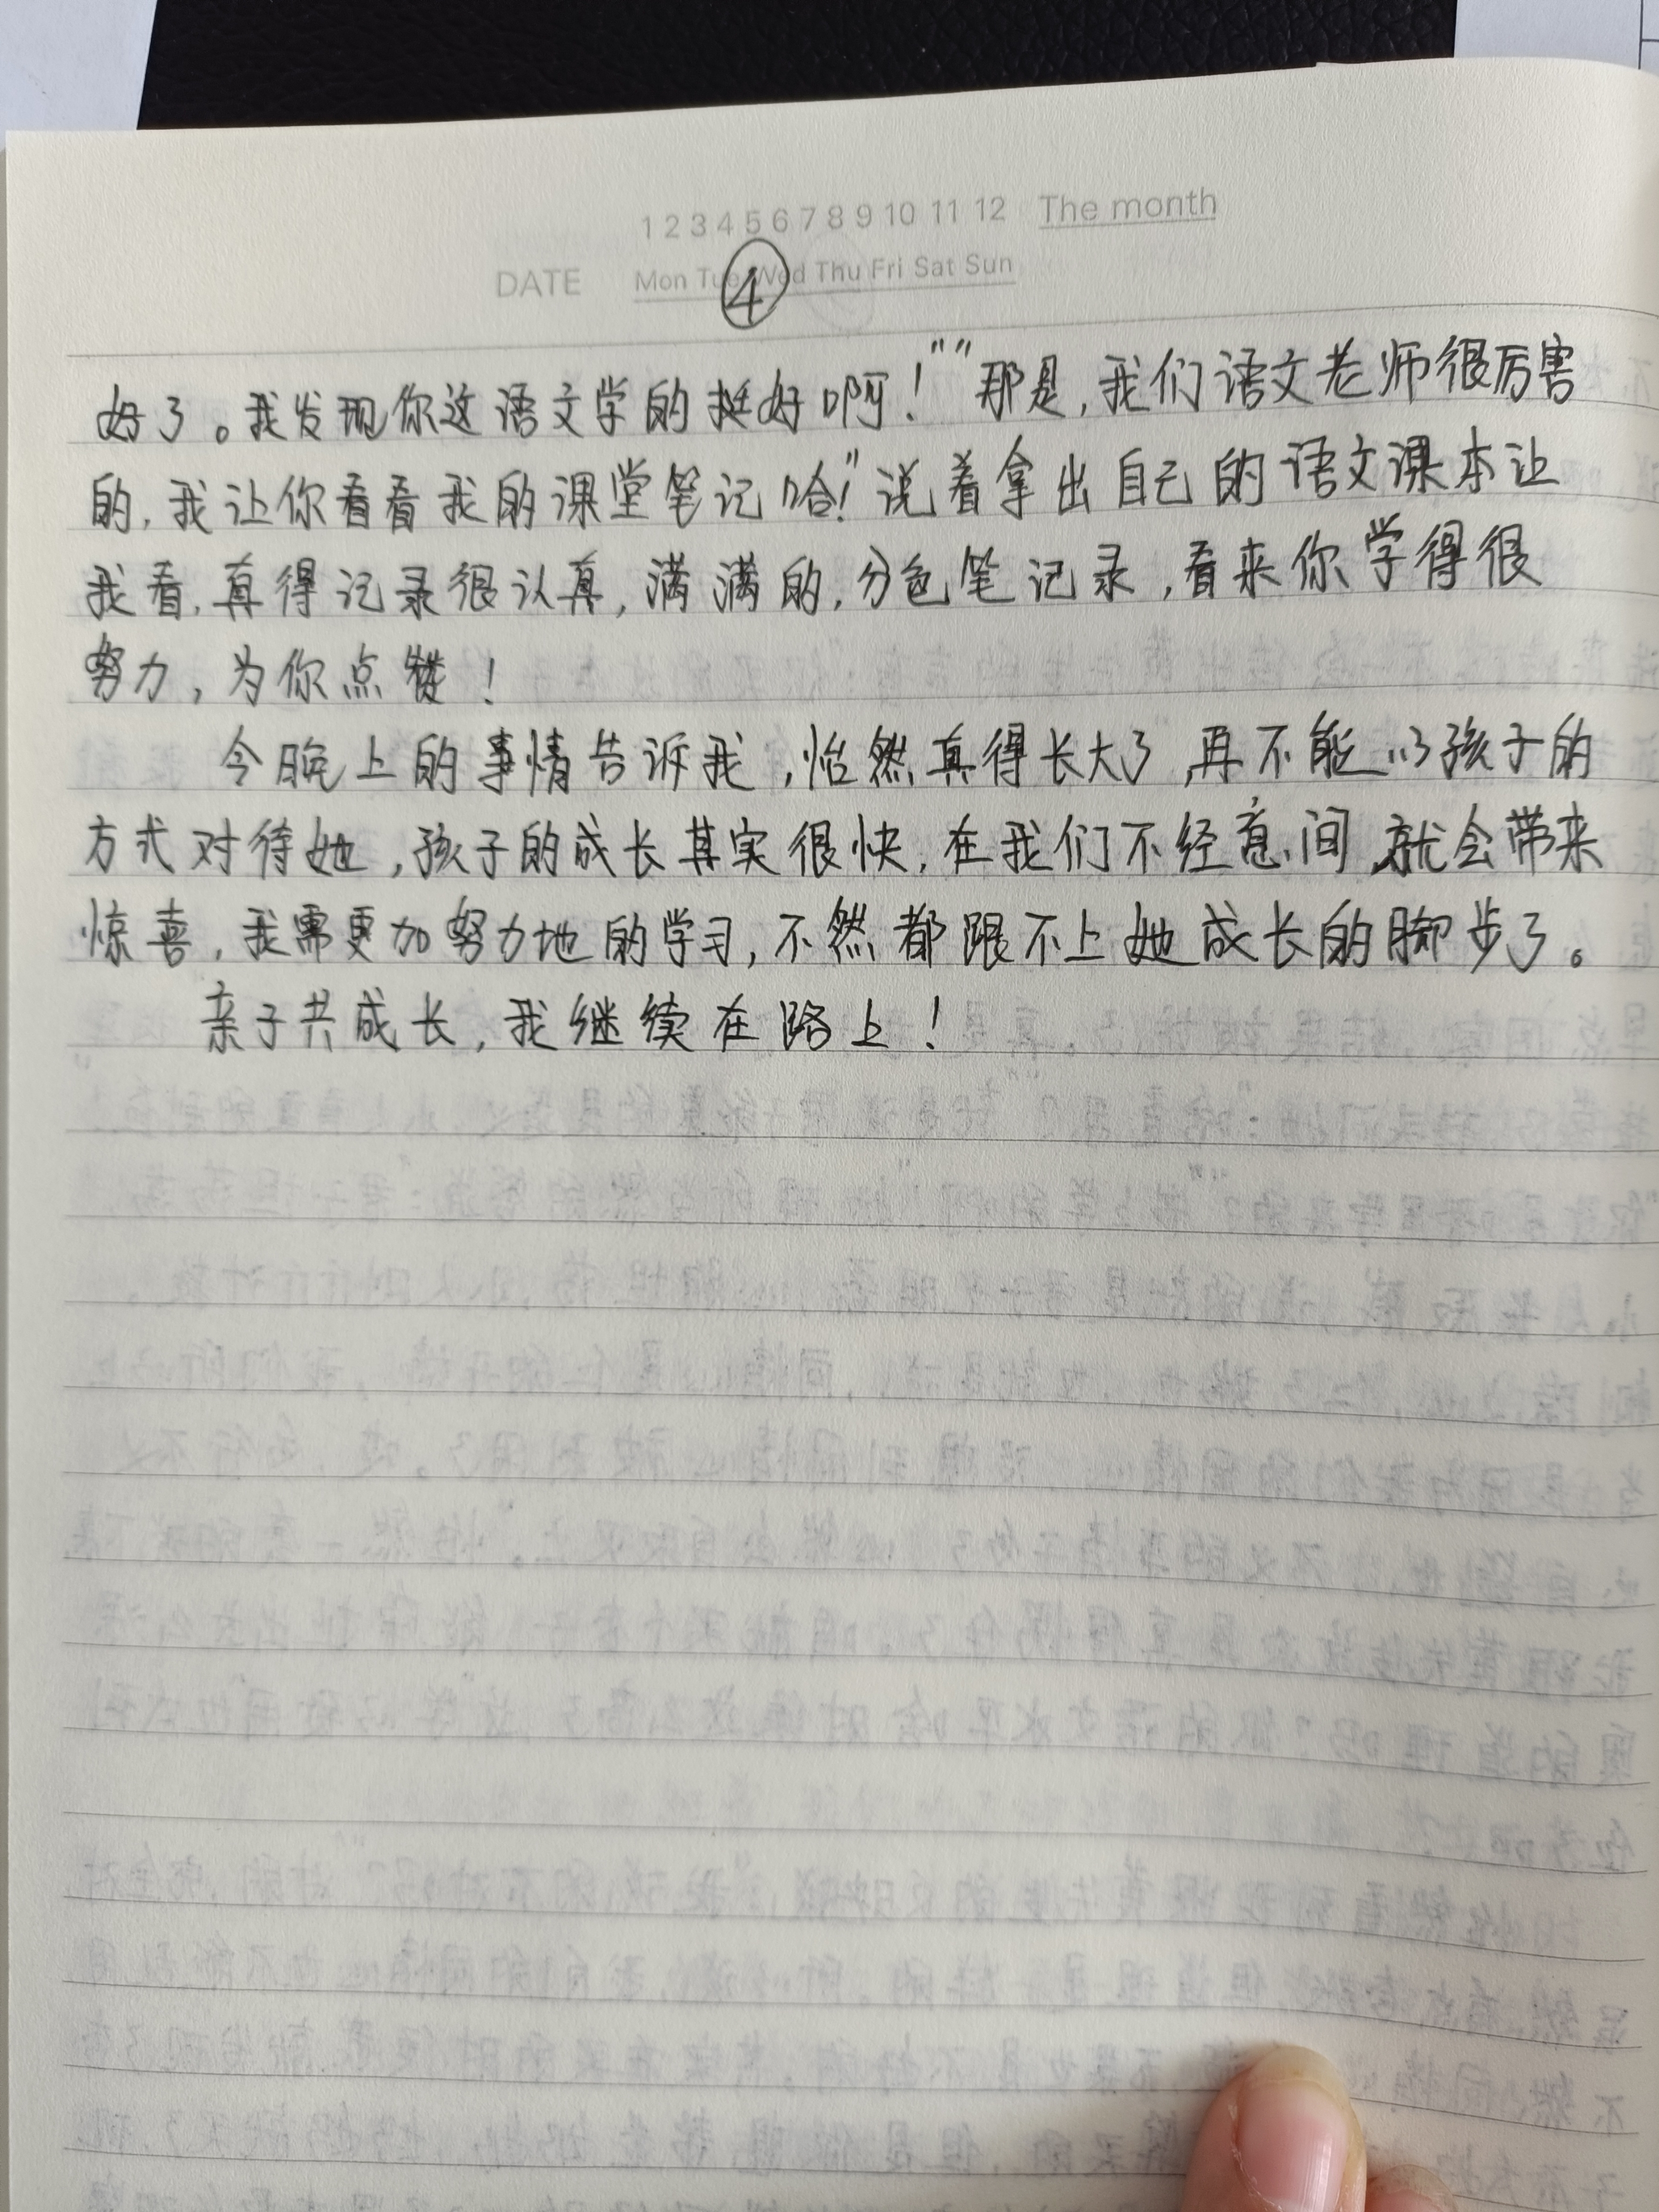 1 2 3 4 5 6 7 8 9 10 11 12 The month
DATE Mon Tue Wed Thu Fri Sat Sun
④
好了。我发现你这语文学的挺好啊！”“那是，我们语文老师很厉害
的，我让你看看我的课堂笔记哈！”说着拿出自己的语文课本让
我看，真得记录很认真，满满的，分色笔记录，看来你学得很
努力，为你点赞！
今晚上的事情告诉我，怡然真得长大了，再不能以孩子的
方式对待她，孩子的成长其实很快，在我们不经意间，就会带来
惊喜，我需更加努力地的学习，不然都跟不上她成长的脚步了。
亲子共成长，我继续在路上！